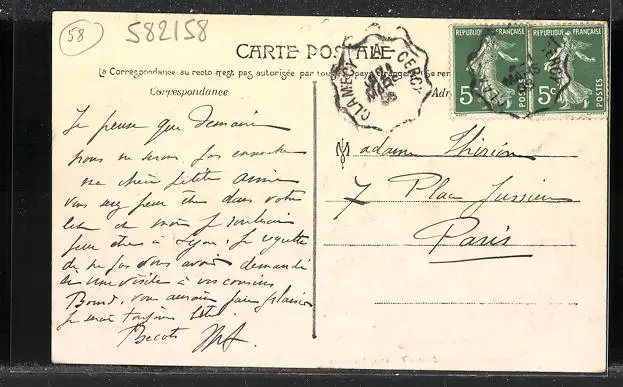 58
582158
CARTE POSTALE
La Correspondance au recto n'est pas autorisée par tous pays étrangers. Se ren
Correspondance
Adr
CLAMECY
CERCY
RÉPUBLIQUE FRANÇAISE
5c
POSTES
RÉPUBLIQUE FRANÇAISE
5c
POSTES
Je pense que demain
nous ne serons pas
ma chère petite amie
vous peut être dans votre
et moi
peut être à Lyon. Je regrette
de ne pas vous avoir demandé
une visite à vos cousins
vous faire plaisir
Je serai toujours
Becots
Madame Thirion
7 Place Jussieu
Paris